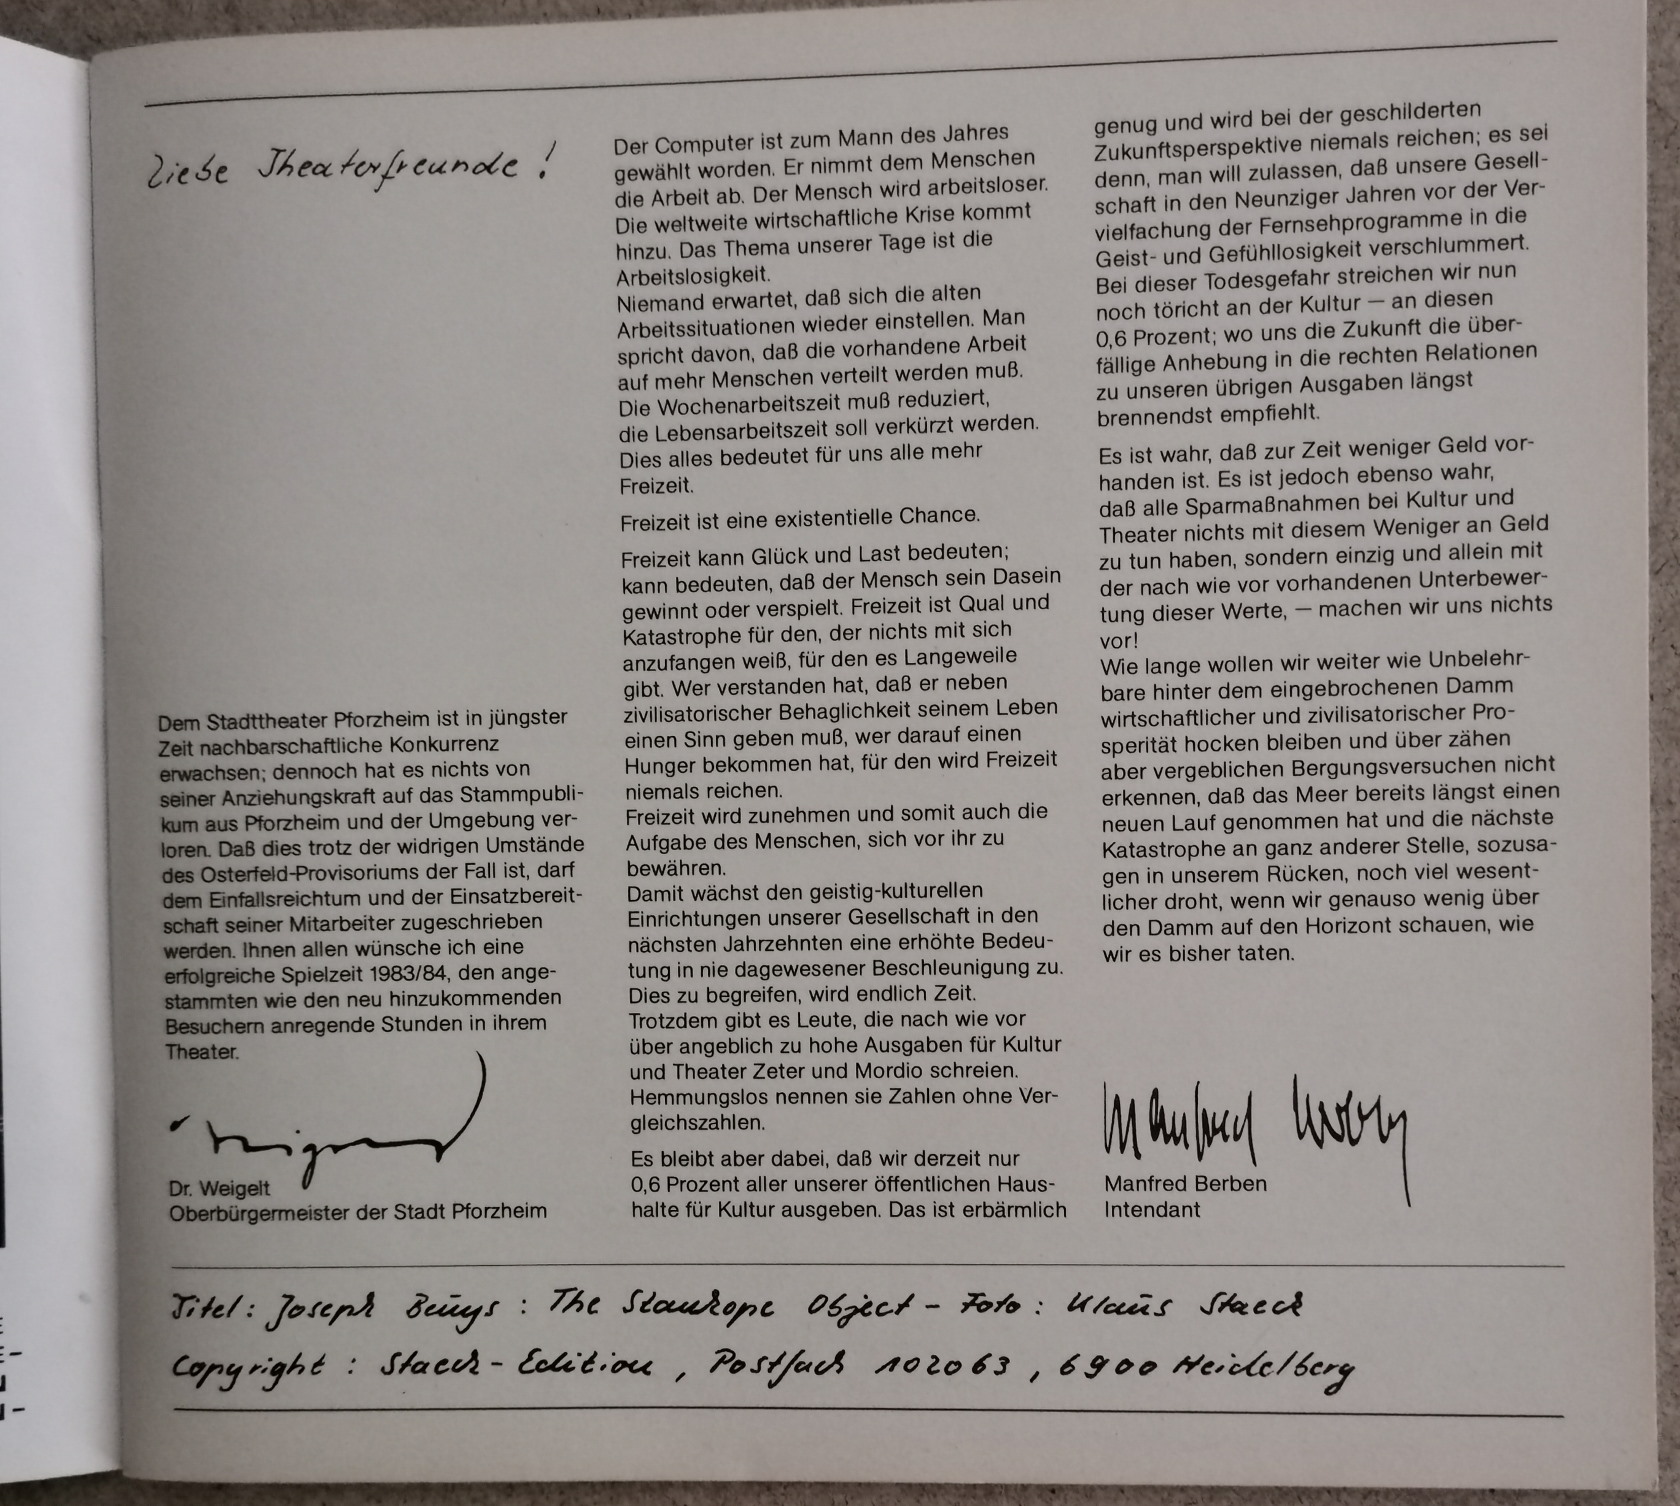 Liebe Theaterfreunde!
Dem Stadttheater Pforzheim ist in jüngster
Zeit nachbarschaftliche Konkurrenz
erwachsen; dennoch hat es nichts von
seiner Anziehungskraft auf das Stammpubli-
kum aus Pforzheim und der Umgebung ver-
loren. Daß dies trotz der widrigen Umstände
des Osterfeld-Provisoriums der Fall ist, darf
dem Einfallsreichtum und der Einsatzbereit-
schaft seiner Mitarbeiter zugeschrieben
werden. Ihnen allen wünsche ich eine
erfolgreiche Spielzeit 1983/84, den ange-
stammten wie den neu hinzukommenden
Besuchern anregende Stunden in ihrem
Theater.
Dr. Weigelt
Oberbürgermeister der Stadt Pforzheim
Der Computer ist zum Mann des Jahres
gewählt worden. Er nimmt dem Menschen
die Arbeit ab. Der Mensch wird arbeitsloser.
Die weltweite wirtschaftliche Krise kommt
hinzu. Das Thema unserer Tage ist die
Arbeitslosigkeit.
Niemand erwartet, daß sich die alten
Arbeitssituationen wieder einstellen. Man
spricht davon, daß die vorhandene Arbeit
auf mehr Menschen verteilt werden muß.
Die Wochenarbeitszeit muß reduziert,
die Lebensarbeitszeit soll verkürzt werden.
Dies alles bedeutet für uns alle mehr
Freizeit.
Freizeit ist eine existentielle Chance.
Freizeit kann Glück und Last bedeuten;
kann bedeuten, daß der Mensch sein Dasein
gewinnt oder verspielt. Freizeit ist Qual und
Katastrophe für den, der nichts mit sich
anzufangen weiß, für den es Langeweile
gibt. Wer verstanden hat, daß er neben
zivilisatorischer Behaglichkeit seinem Leben
einen Sinn geben muß, wer darauf einen
Hunger bekommen hat, für den wird Freizeit
niemals reichen.
Freizeit wird zunehmen und somit auch die
Aufgabe des Menschen, sich vor ihr zu
bewähren.
Damit wächst den geistig-kulturellen
Einrichtungen unserer Gesellschaft in den
nächsten Jahrzehnten eine erhöhte Bedeu-
tung in nie dagewesener Beschleunigung zu.
Dies zu begreifen, wird endlich Zeit.
Trotzdem gibt es Leute, die nach wie vor
über angeblich zu hohe Ausgaben für Kultur
und Theater Zeter und Mordio schreien.
Hemmungslos nennen sie Zahlen ohne Ver-
gleichszahlen.
Es bleibt aber dabei, daß wir derzeit nur
0,6 Prozent aller unserer öffentlichen Haus-
halte für Kultur ausgeben. Das ist erbärmlich
genug und wird bei der geschilderten
Zukunftsperspektive niemals reichen; es sei
denn, man will zulassen, daß unsere Gesell-
schaft in den Neunziger Jahren vor der Ver-
vielfachung der Fernsehprogramme in die
Geist- und Gefühllosigkeit verschlummert.
Bei dieser Todesgefahr streichen wir nun
noch töricht an der Kultur — an diesen
0,6 Prozent; wo uns die Zukunft die über-
fällige Anhebung in die rechten Relationen
zu unseren übrigen Ausgaben längst
brennendst empfiehlt.
Es ist wahr, daß zur Zeit weniger Geld vor-
handen ist. Es ist jedoch ebenso wahr,
daß alle Sparmaßnahmen bei Kultur und
Theater nichts mit diesem Weniger an Geld
zu tun haben, sondern einzig und allein mit
der nach wie vor vorhandenen Unterbewer-
tung dieser Werte, — machen wir uns nichts
vor!
Wie lange wollen wir weiter wie Unbelehr-
bare hinter dem eingebrochenen Damm
wirtschaftlicher und zivilisatorischer Pro-
sperität hocken bleiben und über zähen
aber vergeblichen Bergungsversuchen nicht
erkennen, daß das Meer bereits längst einen
neuen Lauf genommen hat und die nächste
Katastrophe an ganz anderer Stelle, sozusa-
gen in unserem Rücken, noch viel wesent-
licher droht, wenn wir genauso wenig über
den Damm auf den Horizont schauen, wie
wir es bisher taten.
Manfred Berben
Manfred Berben
Intendant
Titel: Joseph Beuys: The Stanhope Object - Foto: Klaus Staeck
Copyright: Staeck-Edition, Postfach 102063, 6900 Heidelberg